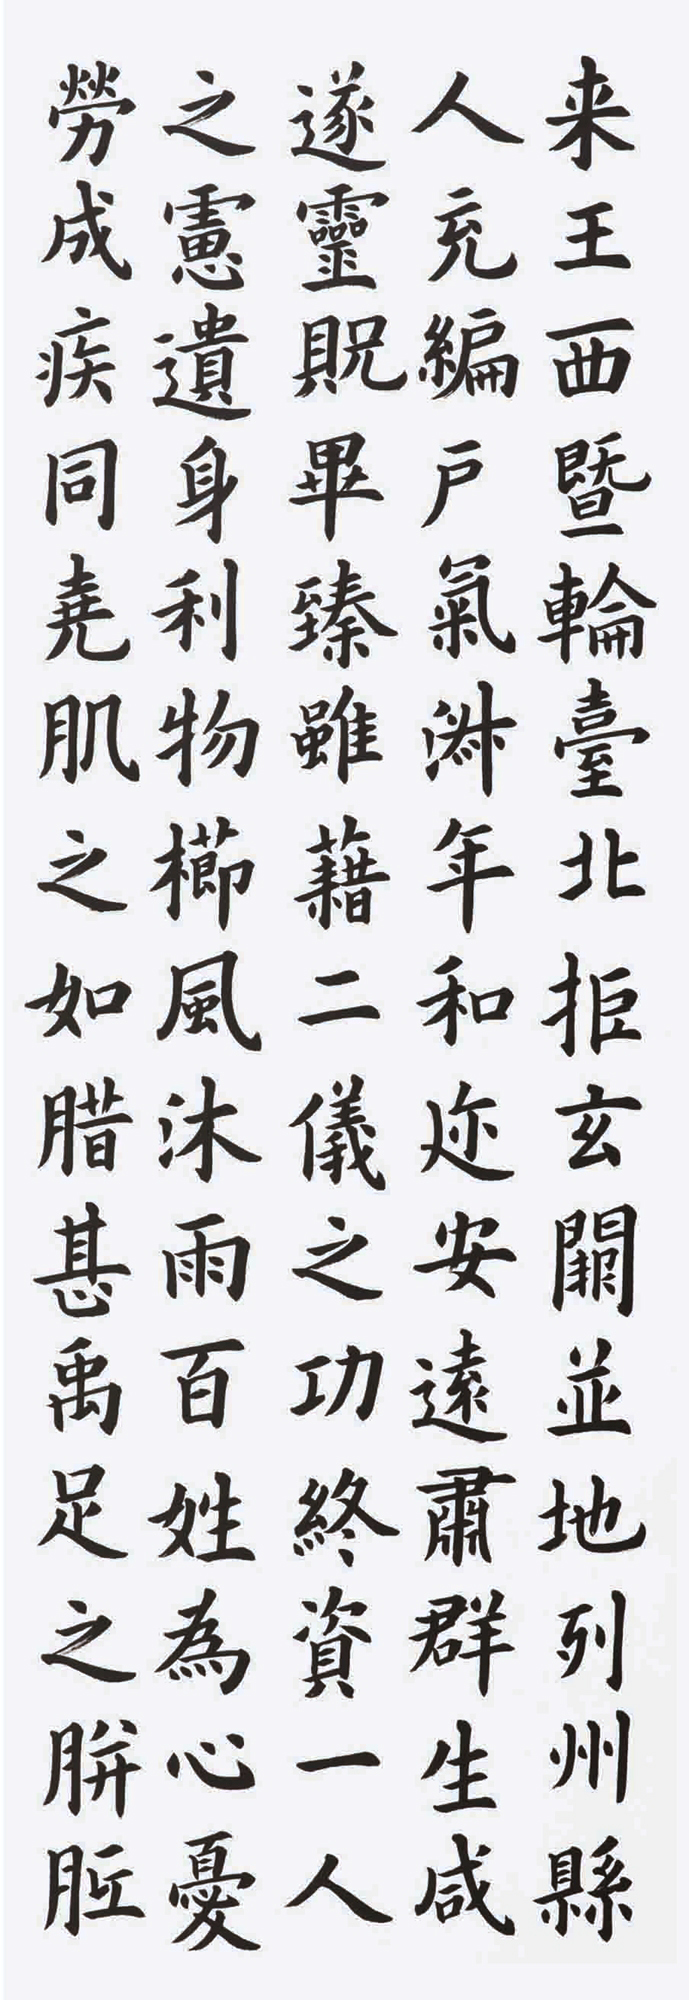 来王西暨輪臺北拒玄闕並地列州縣
人充編戶氣淋年和迩安遠肅群生咸
遂靈貺畢臻雖藉二儀之功終資一人
之慮遺身利物櫛風沐雨百姓為心憂
勞成疾同堯肌之如腊甚禹足之胼胝